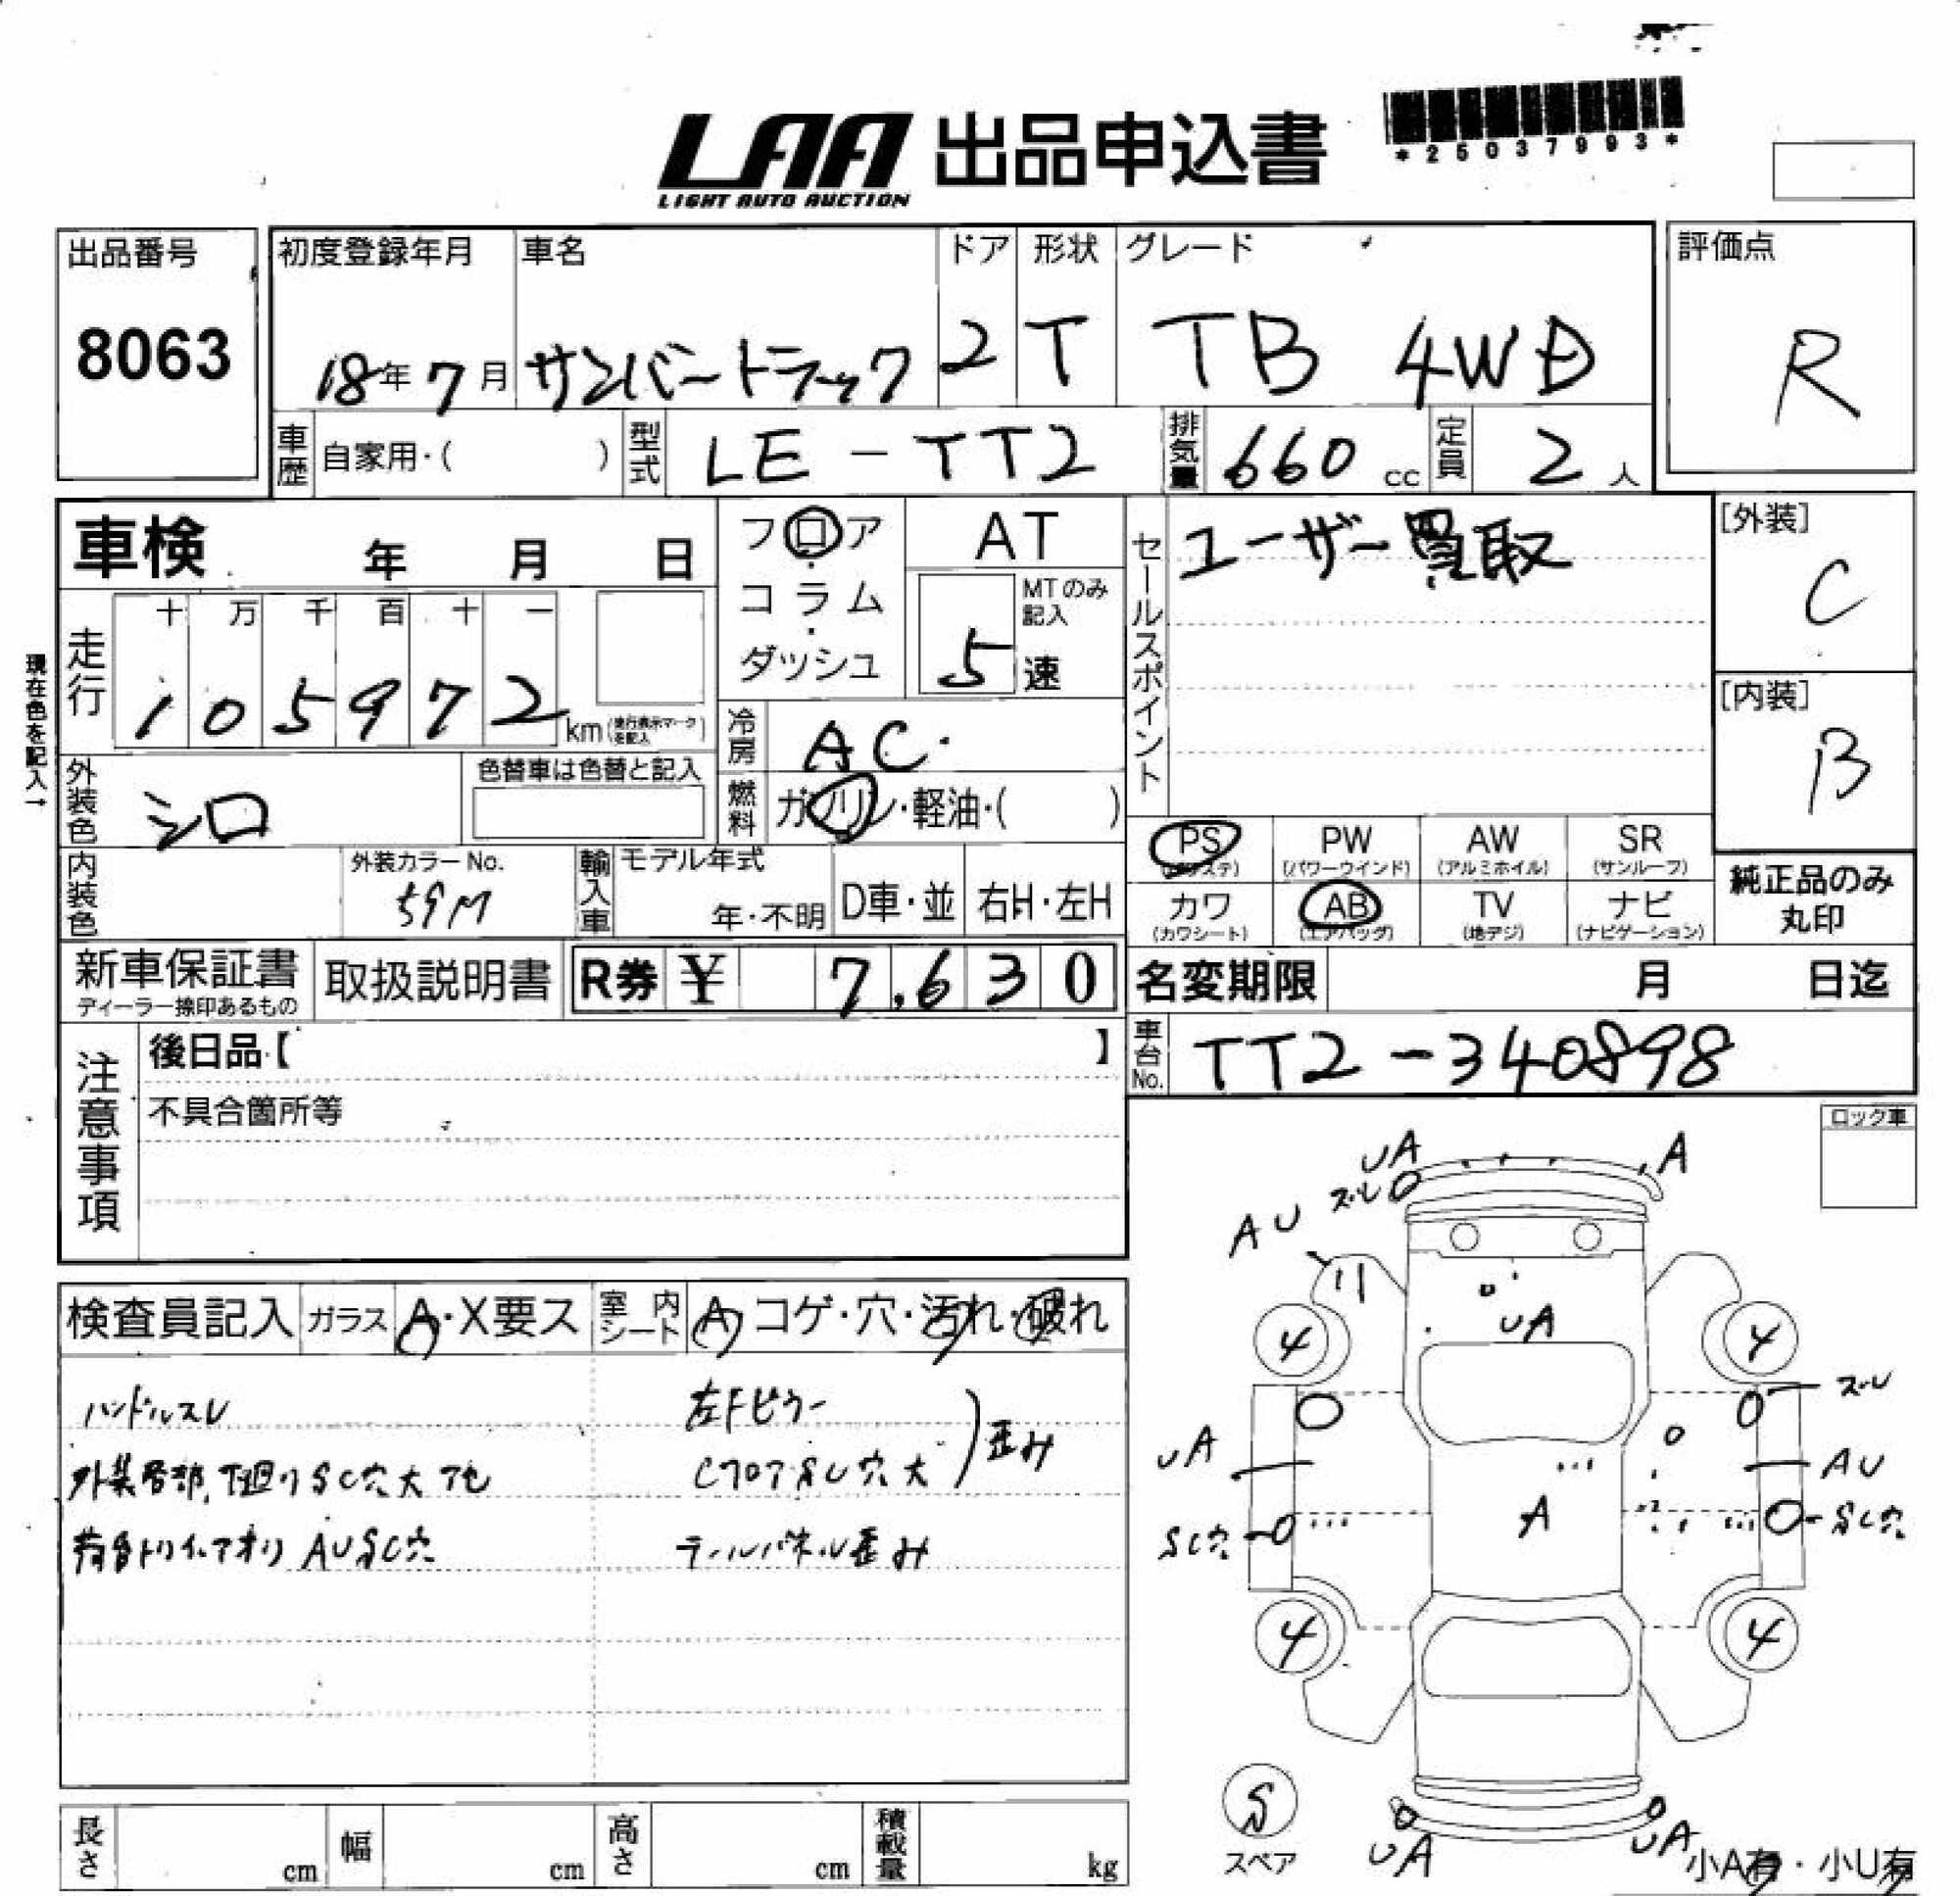 LAA 出品申込書
LIGHT AUTO AUCTION
*25037993*
出品番号
8063
初度登録年月
18年7月
車名
サンバートラック
ドア
2
形状
T
グレード
TB 4WD
評価点
R
車歴
自家用・( )
型式
LE-TT2
排気量
660 cc
定員
2 人
車検 年 月 日
フロア
・
コラム
・
ダッシュ
AT
MTのみ
記入
5 速
セールスポイント
ユーザー買取
[外装]
C
[内装]
B
現在色を記入→
走行
十 万 千 百 十 一
1 0 5 9 7 2 km (走行表示マークを記入)
冷房
AC
燃料
ガソリン・軽油・( )
外装色
シロ
色替車は色替と記入
内装色
外装カラーNo.
59M
輸入車
モデル年式
年・不明
D車・並
右H・左H
PS
(パワステ)
PW
(パワーウインド)
AW
(アルミホイル)
SR
(サンルーフ)
カワ
(カワシート)
AB
(エアバッグ)
TV
(地デジ)
ナビ
(ナビゲーション)
純正品のみ
丸印
新車保証書
ディーラー捺印あるもの
取扱説明書
R券 ¥ 7,630
名変期限 月 日迄
注意事項
後日品【 】
不具合箇所等
車台No.
TT2-340898
ロック車
検査員記入
ガラス
A・X要ス
室内シート
A コゲ・穴・汚れ・破れ
ハンドルスレ
外装各部、下廻りSC穴大 アセ
荷台トリイ、アオリ AUSC穴
左Fピラー
CフロアSC穴大
)歪み
テールパネル歪み
UA
ズレ
A
AU
UA
4
4
ズレ
UA
AU
A
SC穴
SC穴
4
4
S
スペア
UA
UA
小A有・小U有
長さ cm
幅 cm
高さ cm
積載量 kg